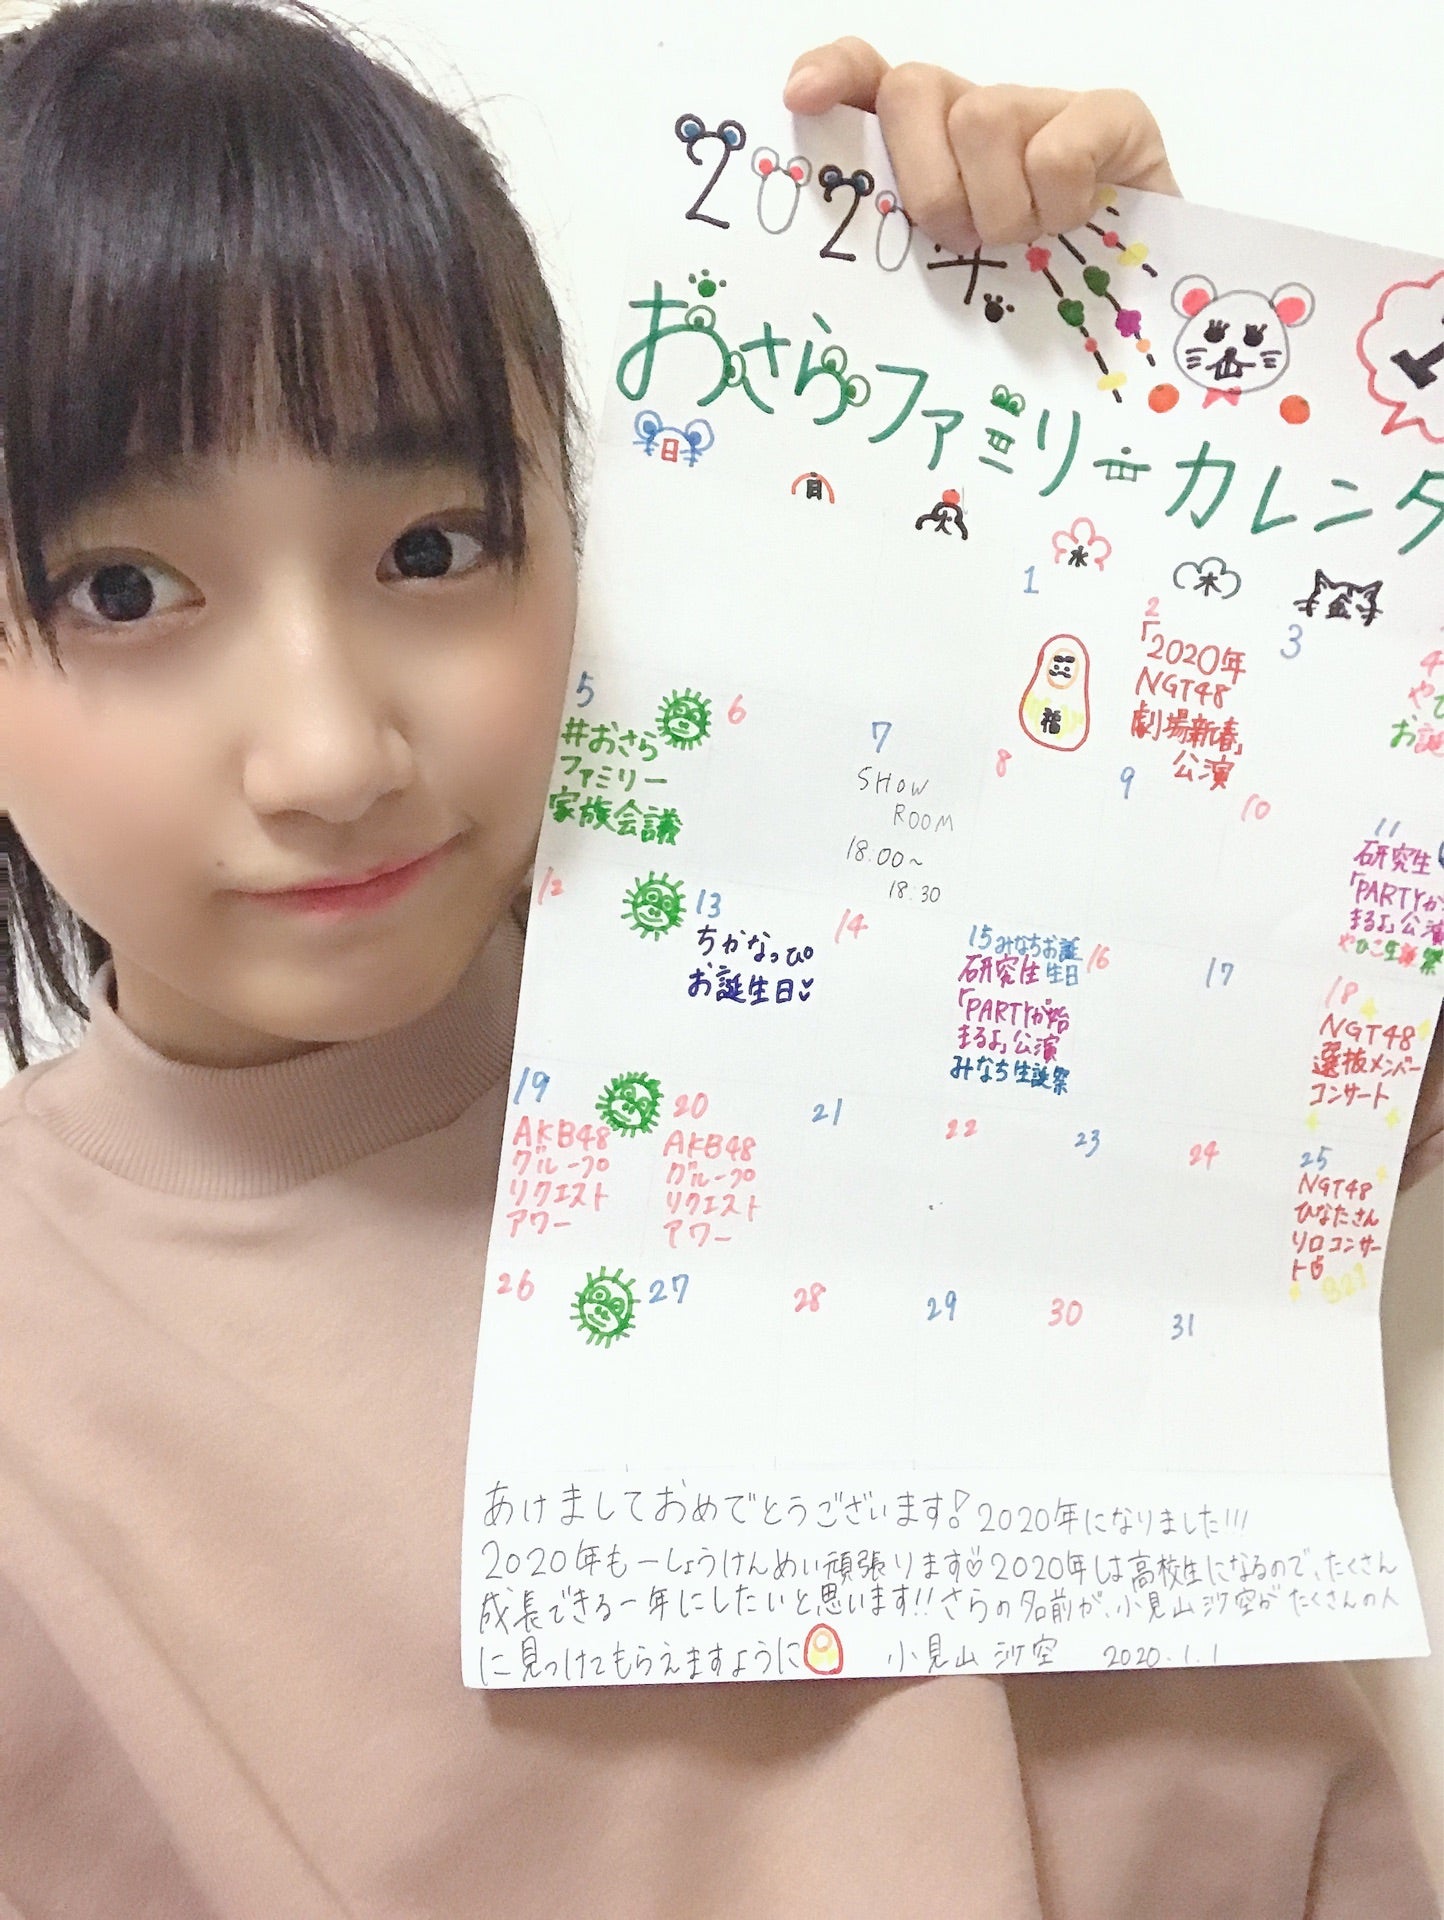 2020年
おさらファミリーカレンダ
日 月 火 水 木 金
1
2
「2020年
NGT48
劇場新春」
公演
3
4
お誕
5
#おさら
ファミリー
家族会議
6
7
SHOW
ROOM
18:00~
18:30
8
9
10
11
研究生
「PARTYが
まるよ」公演
やひこ生誕祭
12
13
ちかなっぴ
お誕生日
14
15 みなちお誕
生日
研究生
「PARTYが始
まるよ」公演
みなち生誕祭
16
17
18
NGT48
選抜メンバー
コンサート
19
AKB48
グループ
リクエスト
アワー
20
AKB48
グループ
リクエスト
アワー
21
22
23
24
25
NGT48
ひなたさん
ソロコンサー
ト
26
27
28
29
30
31
福
あけましておめでとうございます! 2020年になりました!!!
2020年も一しょうけんめい頑張ります♡2020年は高校生になるので、たくさん
成長できる一年にしたいと思います!!さらの名前が、小見山沙空がたくさんの人
に見つけてもらえますように 小見山 沙空 2020.1.1